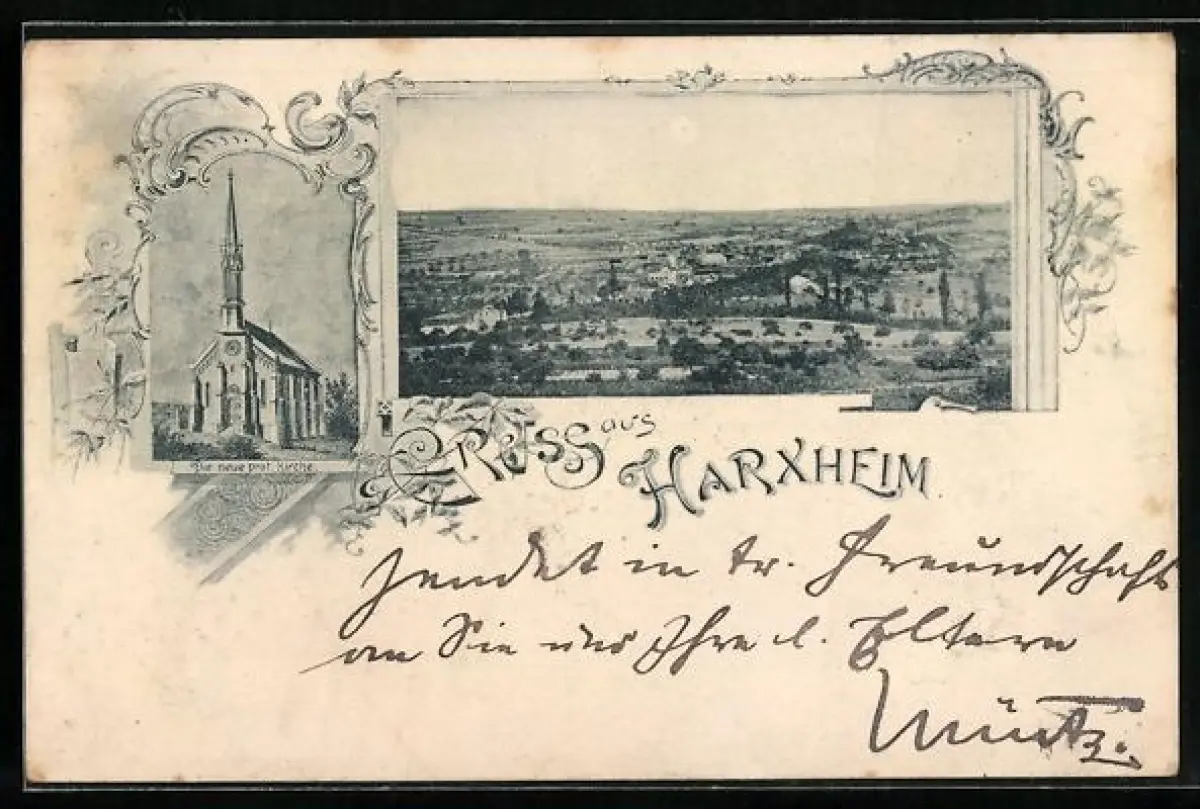 Die neue prot. Kirche.
GRUSS aus HARXHEIM.
sendet in tr. Freundschaft
an Sie und Ihre l. Eltern
Müntz.